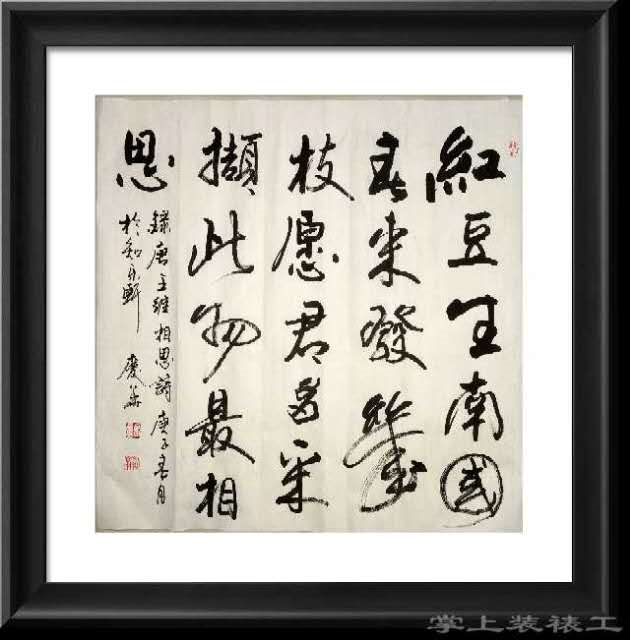 紅豆生南國
春来發幾
枝愿君多采
擷此物最相
思
録唐王維相思詩庚子春月
於知乐軒 慶華
掌上装裱工